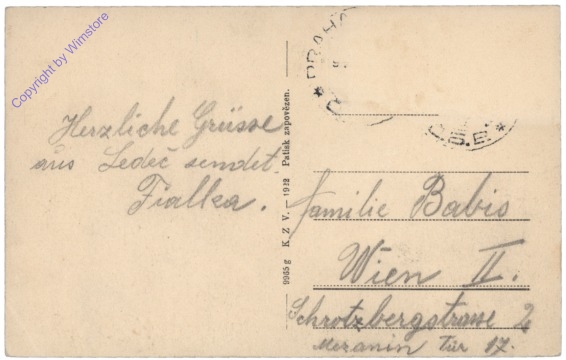 Copyright by Wimstore
Herzliche Grüsse
aus Ledeč sendet
Fialka.
9965 g K. Z. V. — 1922 Patisk zapovězen.
PRAHA
Familie Babis
Wien II.
Schrotzbergstrasse 2
Mezanin Tür 17.